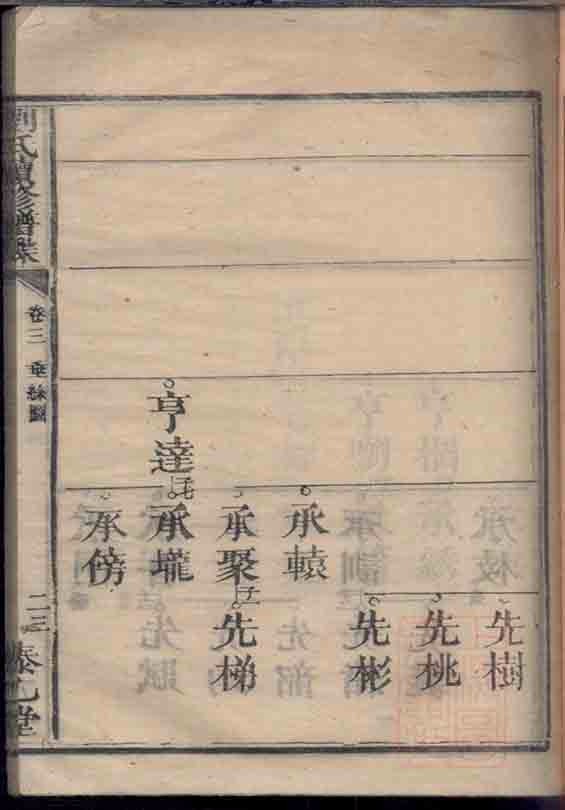 先樹
先桃
先彬
承轅
承聚
先梯
亨達
承壠
承傍
劉氏續修譜牒
卷三 垂絲圖
二三
泰元堂